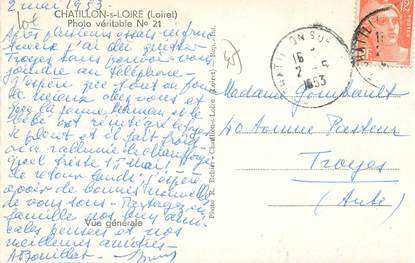 2 mai 1953.
CHATILLON-s-LOIRE (Loiret)
Photo véritable No 21
Après plusieurs essais infruc-
tueux j'ai dû quitter
Troyes sans pouvoir vous
joindre au téléphone.
J'espère que tout va pour
le mieux chez vous et
que la jeune maman et le
bébé ont
il pleut et il fait froid
on a rallumé le chauffage
Quel triste 1er mai !
de retour lundi j'espère
avoir de bonnes nouvelles
de vous tous. Partagez en
famille nos bien ami-
cales pensées et nos
meilleures amitiés
Vue générale
Photo R. Châtillon-s-Loire (Loiret) - Rep. Int.
CHATILLON SUR
16
2-5
1953
12F
Madame
40 Avenue Pasteur
Troyes
(Aube)